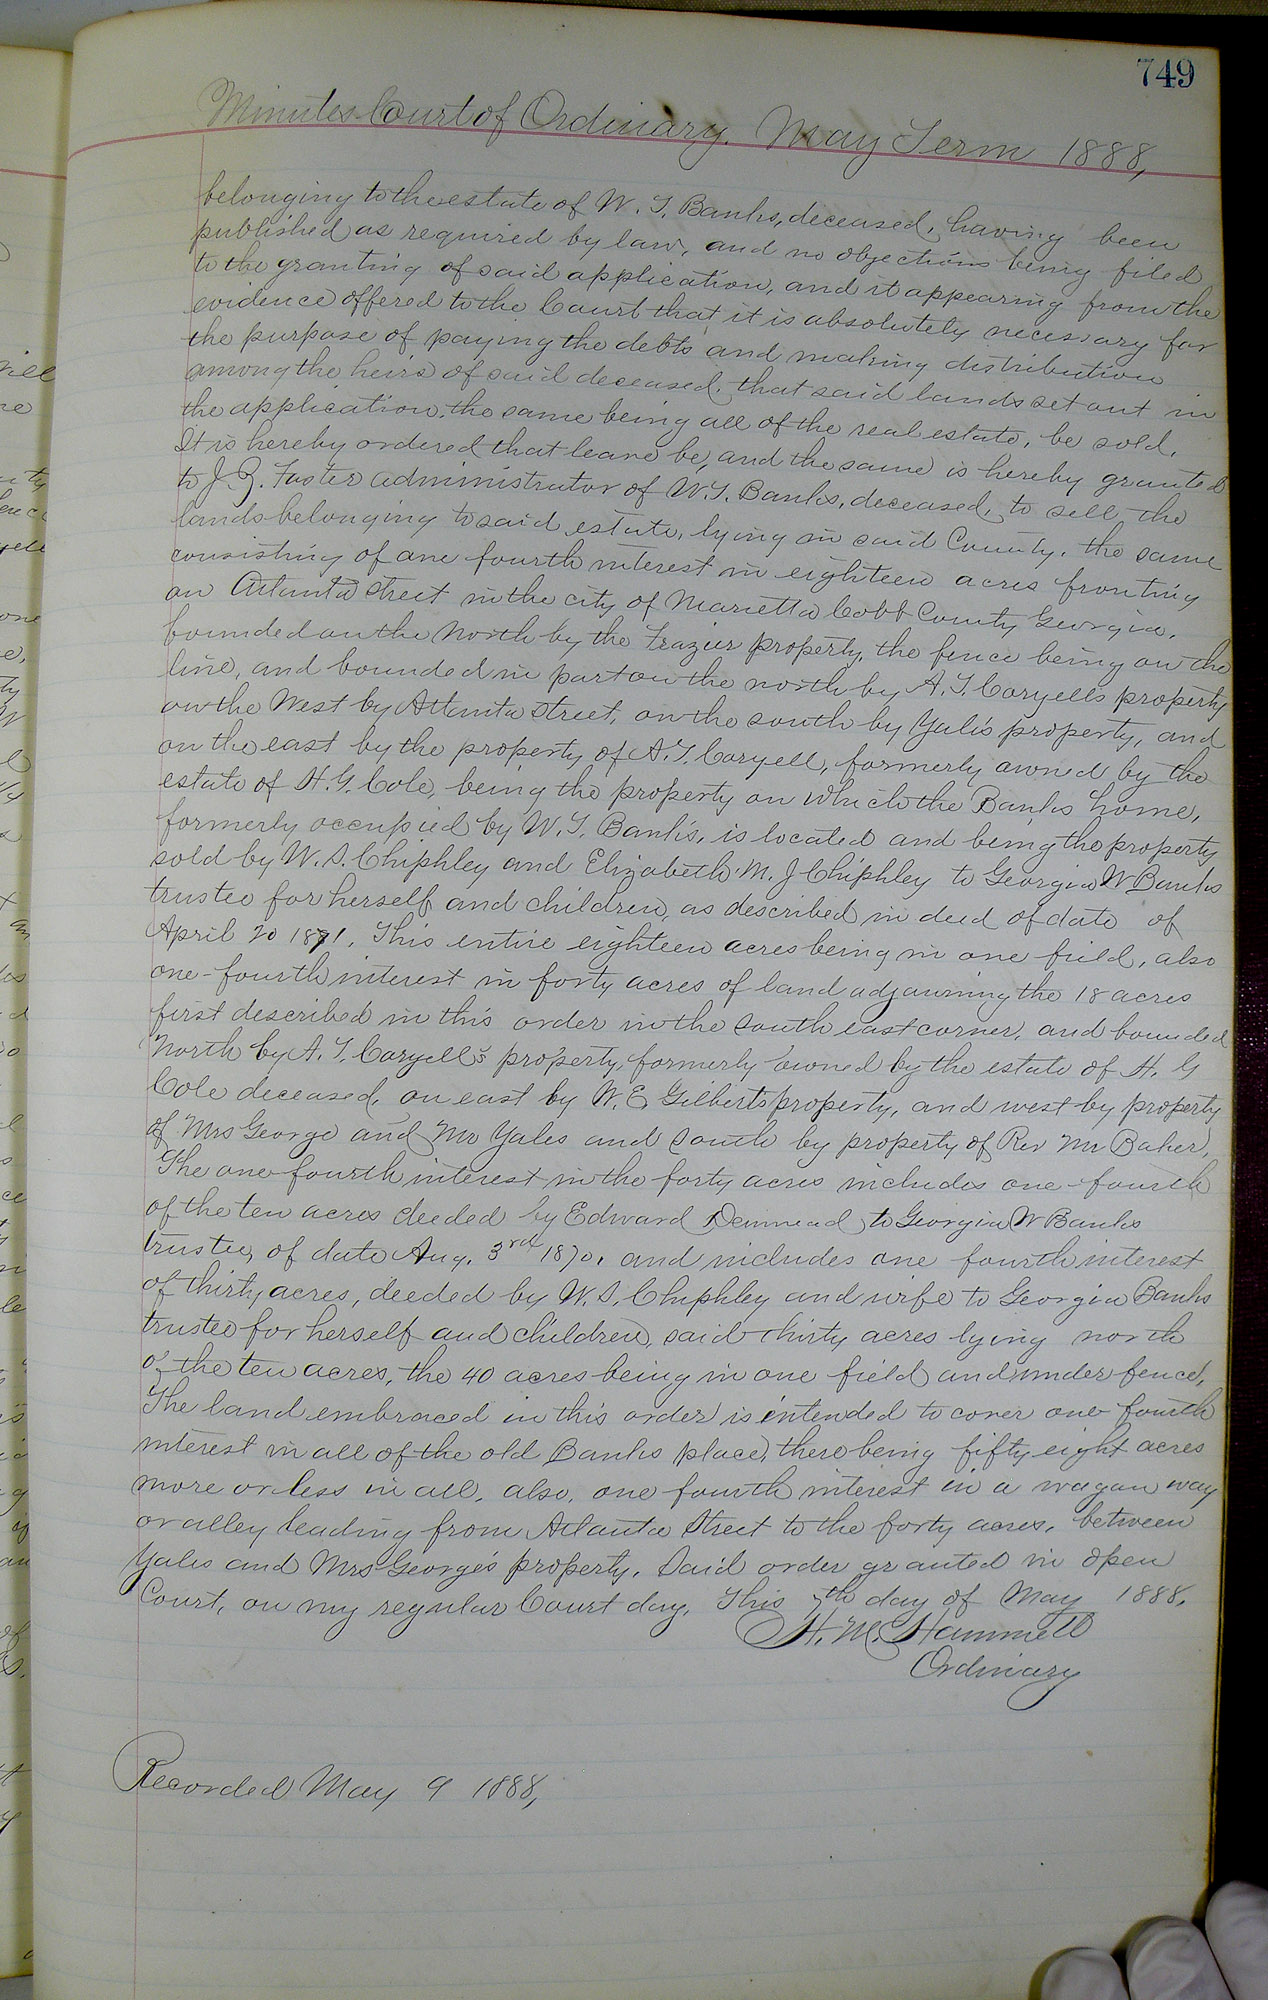 749
Minutes Court of Ordinary. May Term 1888,
belonging to the estate of W. T. Banks, deceased, having been
published as required by law, and no objections being filed
to the granting of said application, and it appearing from the
evidence offered to the Court that it is absolutely necessary for
the purpose of paying the debts and making distribution
among the heirs of said deceased, that said lands set out in
the application, the same being all of the real estate, be sold.
It is hereby ordered that leave be, and the same is hereby granted
to J. Z. Foster administrator of W. T. Banks, deceased, to sell the
lands belonging to said estate, lying in said County, the same
consisting of one fourth interest in eighteen acres fronting
on Atlanta Street in the city of Marietta Cobb County Georgia,
bounded on the North by the Frazier property, the fence being on the
line, and bounded in part on the north by A. T. Coryells property
on the West by Atlanta Street, on the south by Yales property, and
on the east by the property of A. T. Coryell, formerly owned by the
estate of H. G. Cole, being the property on which the Banks home,
formerly occupied by W. T. Banks, is located and being the property
sold by W. S. Chiphley and Elizabeth M. J Chiphley to Georgia W Banks
trustee for herself and children, as described in deed of date of
April 20 1871. This entire eighteen acres being in one field, also
one-fourth interest in forty acres of land adjourning the 18 acres
first described in this order in the south east corner, and bounded
North by A. T. Coryell's property, formerly owned by the estate of H. G
Cole deceased, on east by W. E. Gilberts property, and west by property
of Mrs George and Mr Yales and South by property of Rev Mr Baker,
The one-fourth interest in the forty acres includes one-fourth
of the ten acres deeded by Edward Denmead to Georgia W Banks
trustee, of date Aug. 3rd 1870. and includes one fourth interest
of thirty acres, deeded by W. S. Chiphley and wife to Georgia Banks
trustee for herself and children, said thirty acres lying north
of the ten acres, the 40 acres being in one field and under fence,
The land embraced in this order is intended to cover one fourth
interest in all of the old Banks place, there being fifty eight acres
more or less in all, also, one fourth interest in a wagon way
or alley leading from Atlanta Street to the forty acres, between
Yales and Mrs George's property. Said order granted in open
Court, on my regular Court day, This 7th day of May 1888.
H. M. Hammett
Ordinary
Recorded May 9 1888,